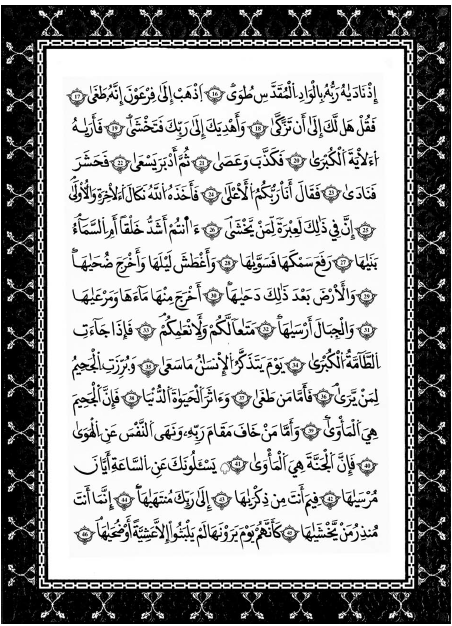 إِذْ نَادَىٰهُ رَبُّهُۥ بِالْوَادِ الْمُقَدَّسِ طُوًى ١٦ اَذْهَبْ إِلَىٰ فِرْعَوْنَ إِنَّهُۥ طَغَىٰ ١٧
فَقُلْ هَل لَّكَ إِلَىٰ أَن تَزَّكَّىٰ ١٨ وَأَهْدِيَكَ إِلَىٰ رَبِّكَ فَتَخْشَىٰ ١٩ فَأَرَىٰهُ
اَ۬لَايَةَ اَ۬لْكُبْرَىٰ ٢٠ فَكَذَّبَ وَعَصَىٰ ٢١ ثُمَّ أَدْبَرَ يَسْعَىٰ ٢٢ فَحَشَرَ
فَنَادَىٰ ٢٣ فَقَالَ أَنَا رَبُّكُمُ الْأَعْلَىٰ ٢٤ فَأَخَذَهُ اللَّهُ نَكَالَ اَ۬لَاخِرَةِ وَالْأُولَىٰ
٢٥ إِنَّ فِي ذَٰلِكَ لَعِبْرَةً لِّمَنْ يَّخْشَىٰ ٢٦ ءَا۬نتُمْ أَشَدُّ خَلْقًا أَمِ السَّمَآءُ
بَنَىٰهَا ٢٧ رَفَعَ سَمْكَهَا فَسَوَّىٰهَا ٢٨ وَأَغْطَشَ لَيْلَهَا وَأَخْرَجَ ضُحَىٰهَا
٢٩ وَالْأَرْضَ بَعْدَ ذَٰلِكَ دَحَىٰهَا ٣٠ أَخْرَجَ مِنْهَا مَآءَهَا وَمَرْعَىٰهَا
٣١ وَالْجِبَالَ أَرْسَىٰهَا ٣٢ مَتَٰعًا لَّكُمْ وَلِأَنْعَٰمِكُمْ ٣٣ فَإِذَا جَآءَتِ
الطَّآمَّةُ الْكُبْرَىٰ ٣٤ يَوْمَ يَتَذَكَّرُ الْإِنسَٰنُ مَا سَعَىٰ ٣٥ وَبُرِّزَتِ الْجَحِيمُ
لِمَنْ يَّرَىٰ ٣٦ فَأَمَّا مَن طَغَىٰ ٣٧ وَءَاثَرَ الْحَيَوٰةَ الدُّنْيَا ٣٨ فَإِنَّ الْجَحِيمَ
هِيَ الْمَأْوَىٰ ٣٩ وَأَمَّا مَنْ خَافَ مَقَامَ رَبِّهِۦ وَنَهَى النَّفْسَ عَنِ الْهَوَىٰ
٤٠ فَإِنَّ الْجَنَّةَ هِيَ الْمَأْوَىٰ ٤١ يَسْـَٔلُونَكَ عَنِ السَّاعَةِ أَيَّانَ
مُرْسَىٰهَا ٤٢ فِيمَ أَنتَ مِن ذِكْرَىٰهَا ٤٣ إِلَىٰ رَبِّكَ مُنتَهَىٰهَا ٤٤ إِنَّمَا أَنتَ
مُنذِرُ مَنْ يَّخْشَىٰهَا ٤٥ كَأَنَّهُمْ يَوْمَ يَرَوْنَهَا لَمْ يَلْبَثُوا إِلَّا عَشِيَّةً أَوْ ضُحَىٰهَا ٤٦